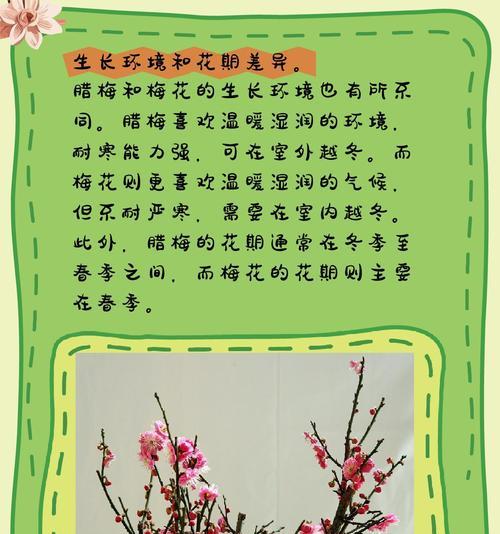 生长环境和花期差异。
腊梅和梅花的生长环境也有所不
同。腊梅喜欢温暖湿润的环境，
耐寒能力强，可在室外越冬。而
梅花则更喜欢温暖湿润的气候，
但不耐严寒，需要在室内越冬。
此外，腊梅的花期通常在冬季至
春季之间，而梅花的花期则主要
在春季。